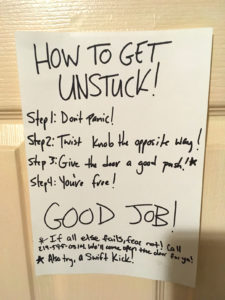 HOW TO GET
UNSTUCK!
Step 1: Don't panic!
Step 2: Twist knob the opposite way!
Step 3: Give the door a good push!*
Step 4: You're free!
GOOD JOB!
* If all else fails, fear not! Call
We'll come open the door for you!
* Also try, a Swift Kick!